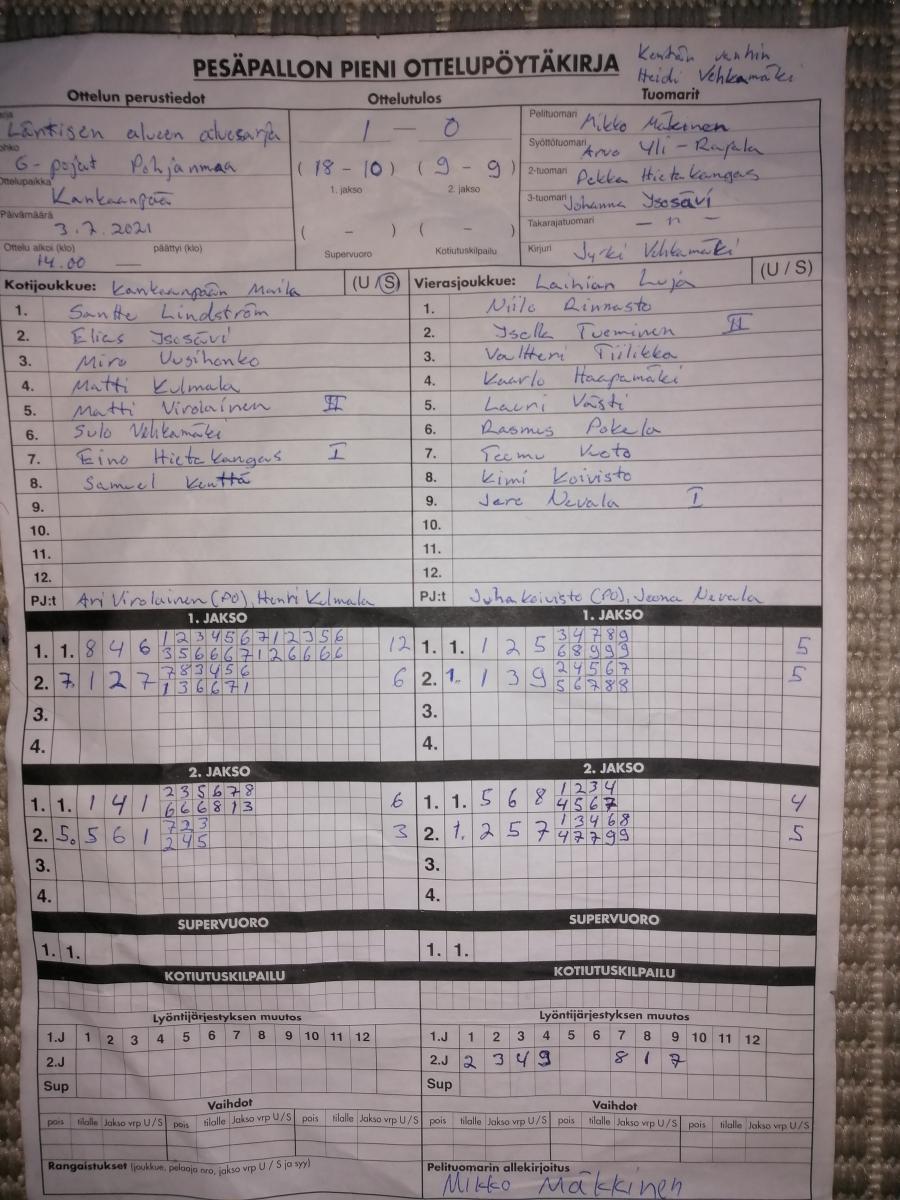 PESÄPALLON PIENI OTTELUPÖYTÄKIRJA
Kentän vanhin
Heidi Vehkamäki
Ottelun perustiedot
Ottelutulos
Tuomarit
Läntisen alueen aluesarja
1 — 0
Pelituomari Mikko Mäkinen
G-pojat Pohjanmaa
(18 - 10) (9 - 9)
1. jakso 2. jakso
Syöttötuomari Arvo Yli-Rajala
Ottelupaikka
Kankaanpää
2-tuomari Pekka Hietakangas
Päivämäärä
3.7.2021
( - ) ( - )
3-tuomari Johanna Isosävi
Takarajatuomari — " —
Ottelu alkoi (klo) päättyi (klo)
14.00 —
Supervuoro Kotiutuskilpailu
Kirjuri Jyrki Vehkamäki
Kotijoukkue: Kankaanpään Maila (U / S)
Vierasjoukkue: Laihian Luja (U / S)
1. Santtu Lindström
2. Elias Isosävi
3. Miro Uusihonko
4. Matti Kulmala
5. Matti Virolainen II
6. Sulo Vehkamäki
7. Eino Hietakangas I
8. Samuel Kenttä
9.
10.
11.
12.
PJ:t Ari Virolainen (PO), Henri Kulmala
1. Niilo Rinnasto
2. Isella Tueminen II
3. Valtteri Tiilikka
4. Kaarlo Haapamäki
5. Lauri Västi
6. Rasmus Pokela
7. Teemu
8. Kimi Koivisto
9. Jere Nevala I
10.
11.
12.
PJ:t Juha Koivisto (PO), Joona Nevala
1. JAKSO
1. 1. 8 4 6 1 2 3 4 5 6 7 1 2 3 5 6 12
3 5 6 6 6 7 1 2 6 6 6 6
2. 7. 1 2 7 7 8 3 4 5 6 6
1 3 6 6 7 1
3.
4.
1. JAKSO
1. 1. 1 2 5 3 4 7 8 9 5
6 8 9 9 9
2. 1. 1 3 9 2 4 5 6 7 5
5 6 7 8 8
3.
4.
2. JAKSO
1. 1. 1 4 1 2 3 5 6 7 8 6
6 6 6 8 1 3
2. 5. 5 6 1 7 2 3 3
2 4 5
3.
4.
2. JAKSO
1. 1. 5 6 8 1 2 3 4 4
4 5 6 7
2. 1. 2 5 7 1 3 4 6 8 5
4 7 7 9 9
3.
4.
SUPERVUORO
1. 1.
SUPERVUORO
1. 1.
KOTIUTUSKILPAILU
KOTIUTUSKILPAILU
Lyöntijärjestyksen muutos
1.J 1 2 3 4 5 6 7 8 9 10 11 12
2.J
Sup
Lyöntijärjestyksen muutos
1.J 1 2 3 4 5 6 7 8 9 10 11 12
2.J 2 3 4 9 8 1 7
Sup
Vaihdot
pois tilalle Jakso vrp U / S pois tilalle Jakso vrp U / S pois tilalle Jakso vrp U / S
Vaihdot
pois tilalle Jakso vrp U / S pois tilalle Jakso vrp U / S pois tilalle Jakso vrp U / S
Rangaistukset (joukkue, pelaaja nro, jakso vrp U / S ja syy)
Pelituomarin allekirjoitus
Mikko Mäkkinen